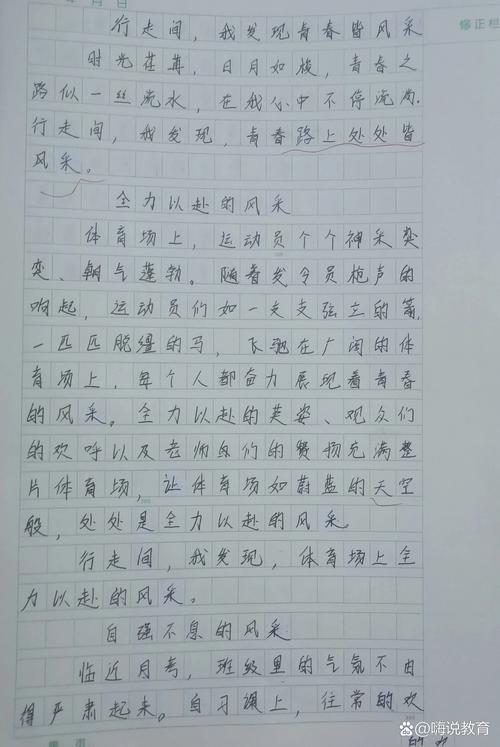 月 日
修正栏
行走间，我发现青春皆风采
时光荏苒，日月如梭，青春之
路似一丝流水，在我心中不停流淌.
行走间，我发现，青春路上处处皆
风采。
全力以赴的风采
体育场上，运动员个个神采奕
奕、朝气蓬勃。随着发令员枪声的
响起，运动员们如一支支弦立的箭，
一匹匹脱缰的马，飞驰在广阔的体
育场上，每个人都奋力展现着青春
的风采。全力以赴的英姿、观众们
的欢呼以及老师们的赞扬充满整
片体育场，让体育场如蔚蓝的天空
般，处处是全力以赴的风采。
行走间，我发现，体育场上全
力以赴的风采。
自强不息的风采
临近月考，班级里的气氛不由
得严肃起来。自习课上，往常的欢
嗨说教育